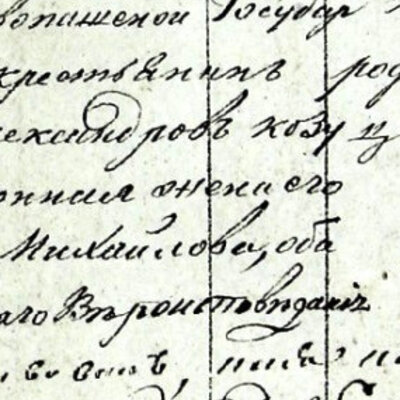 вопашеной Государ
крестьянинъ род
лександровъ козу ц
онная жена его
Михайлова, оба
аго Вѣроисповѣданія